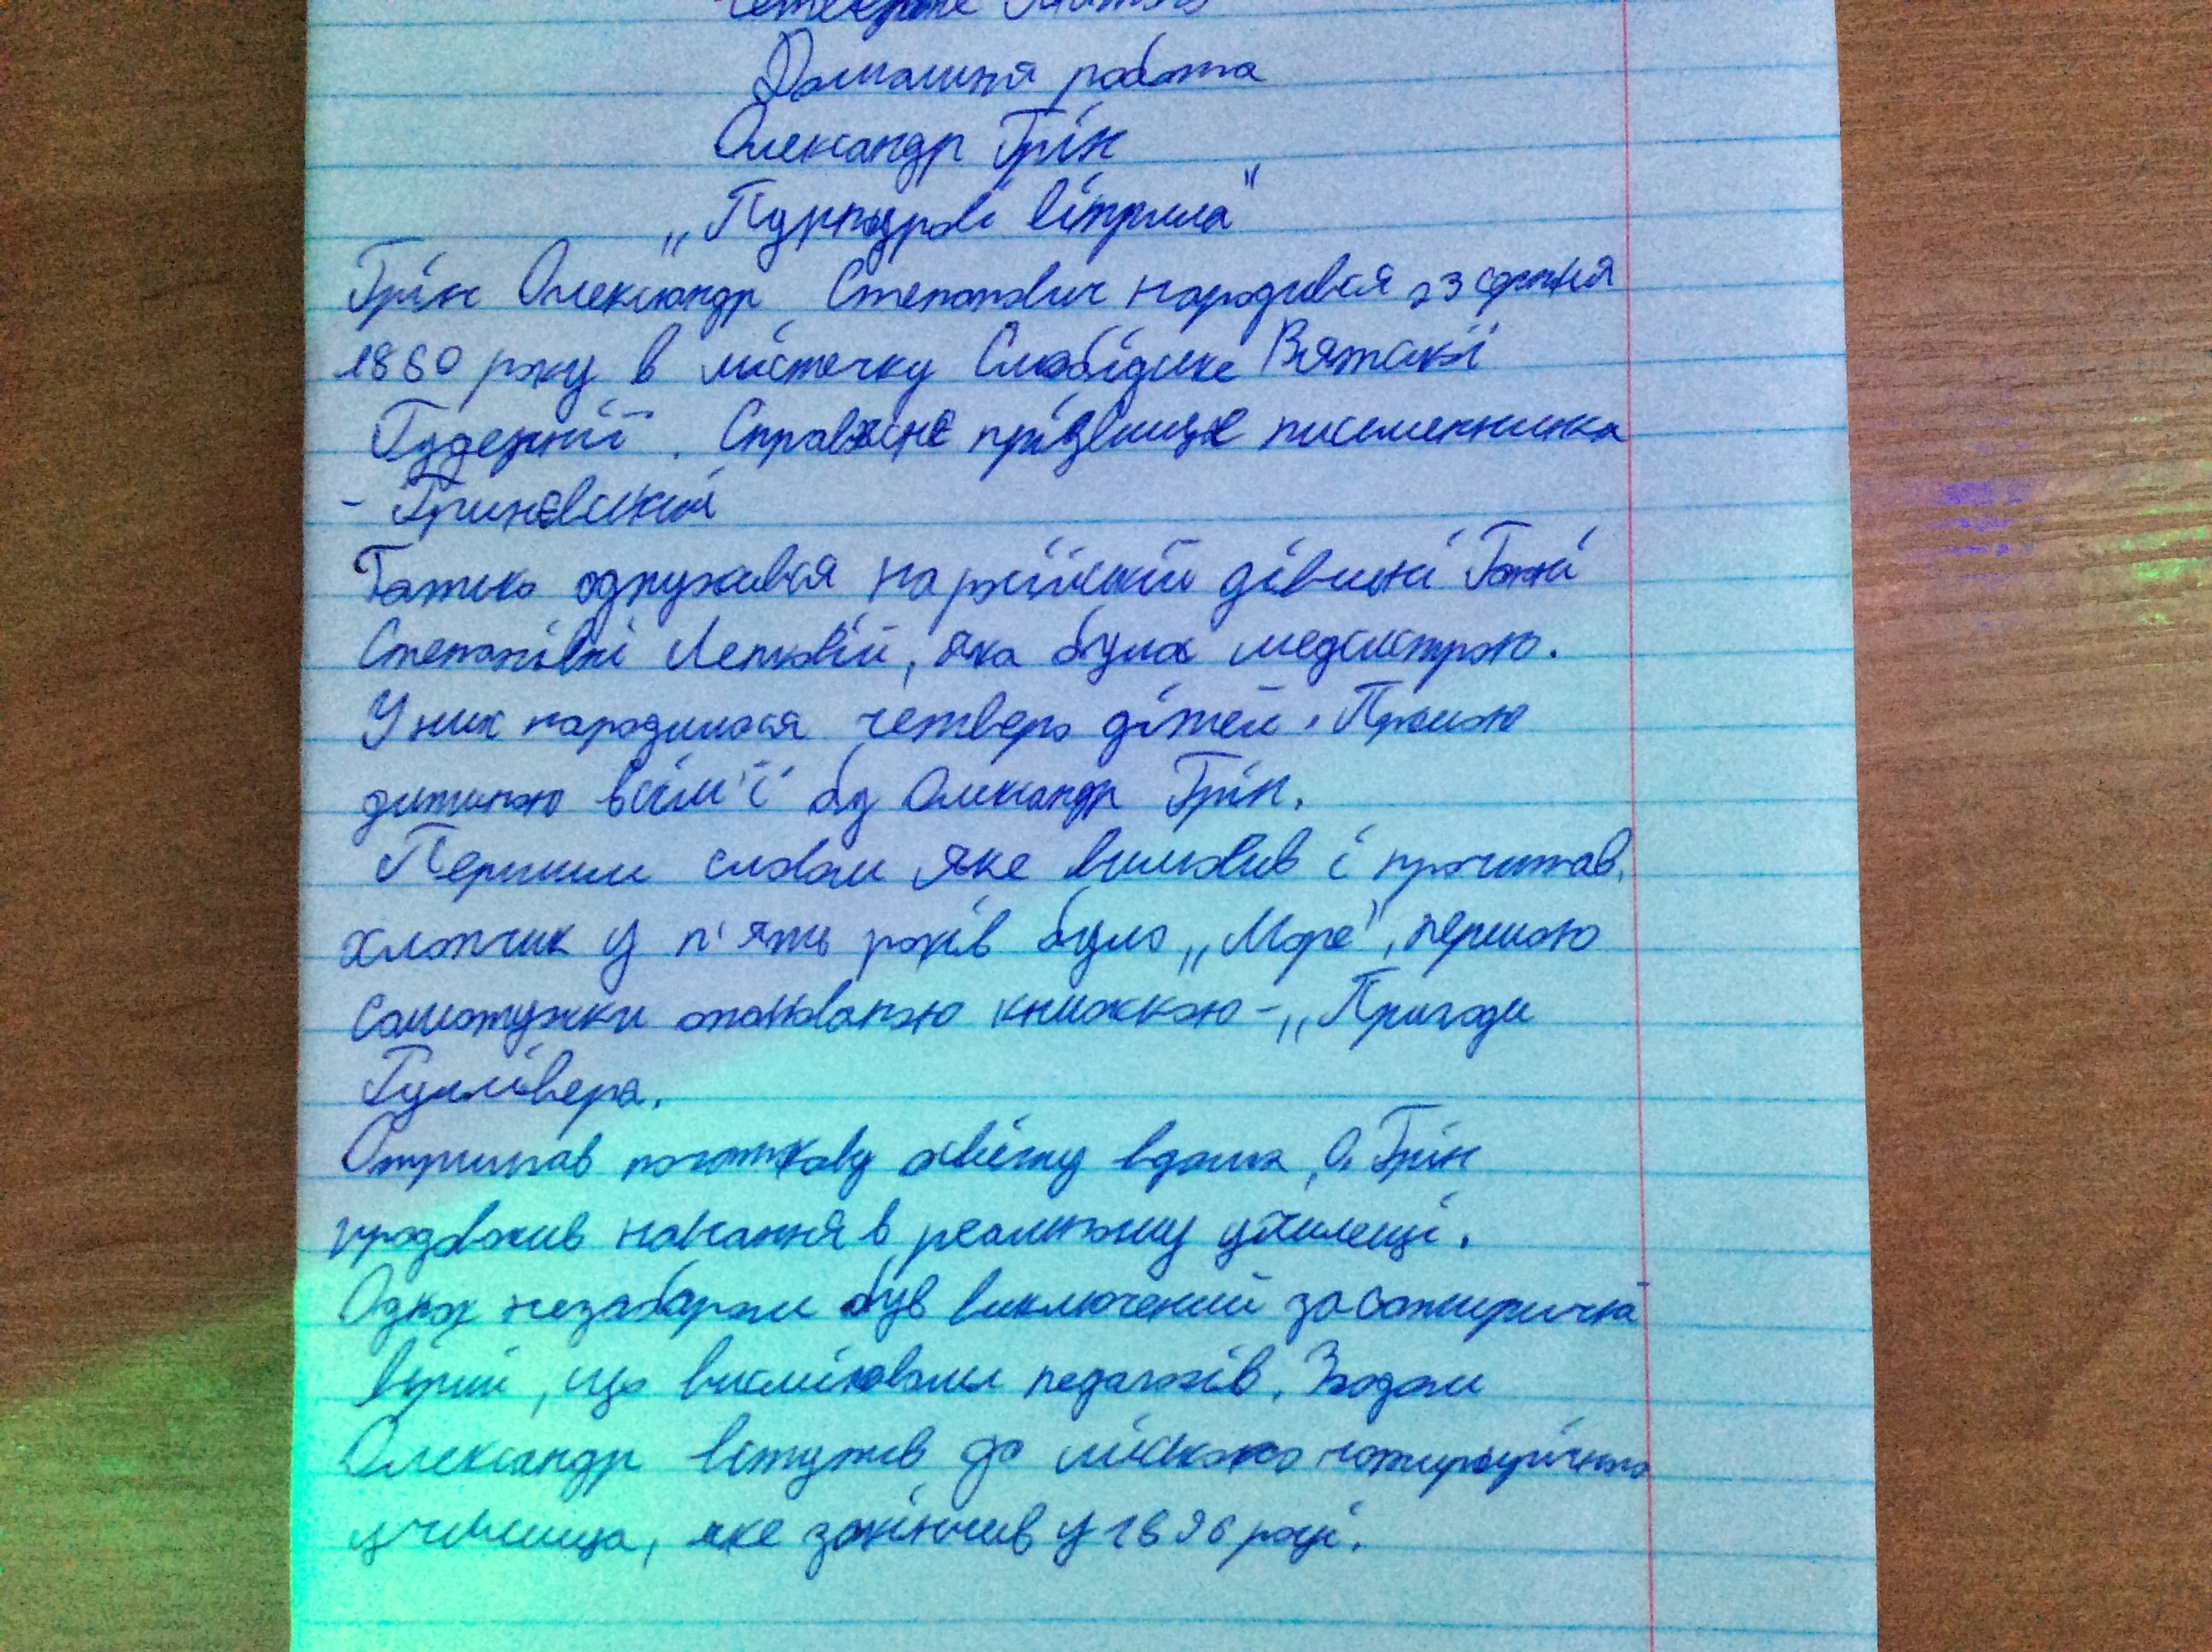 Четверте лютого
Домашня робота
Олександр Грін
„Пурпурові вітрила"
Грін Олександр Степанович народився 23 серпня
1880 року в містечку Слобідське Вятської
Губернії. Справжнє прізвище письменника
- Гриневський
Батько одружився на російській дівчині Ганні
Степанівні Лепковій, яка була медсестрою.
У них народилося четверо дітей. Першою
дитиною в сім'ї був Олександр Грін.
Першим словом яке вимовив і прочитав,
хлопчик у п'ять років було „Море", першою
самотужки опанованою книжкою - „Пригоди
Гуллівера.
Отримав початкову освіту вдома, О. Грін
продовжив навчання в реальному училещі.
Однак незабаром був виключений за сатиричні
вірші, що висміювали педагогів. Згодом
Олександр вступив до міського чотирирічного
училища, яке закінчив у 1896 році.